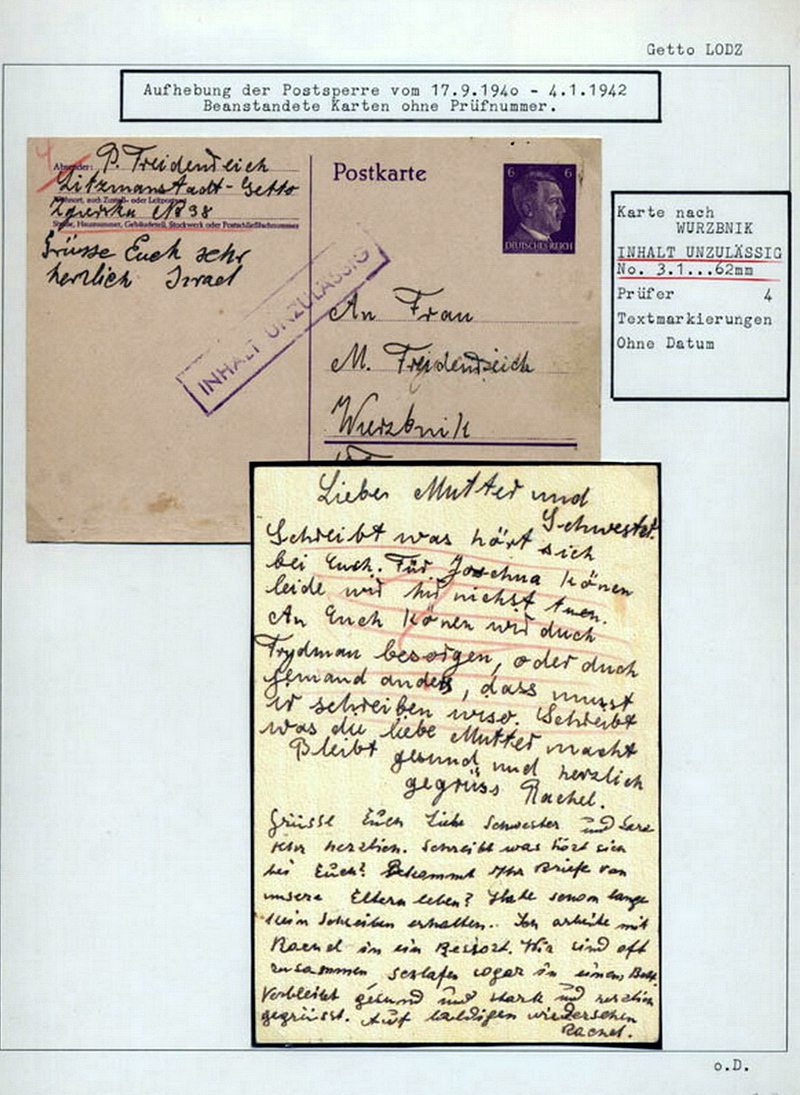 Getto LODZ
Aufhebung der Postsperre vom 17.9.1940 - 4.1.1942
Beanstandete Karten ohne Prüfnummer.
4
Absender: P. Freidenreich
Litzmanstadt-Getto
Wohnort, auch Zustell- oder Leitpostamt
Zgierska No 38
Straße, Hausnummer, Gebäudeteil, Stockwerk oder Postschließfachnummer
Grüsse Euch sehr
herzlich Israel
Postkarte
6 6
DEUTSCHES REICH
INHALT UNZULÄSSIG
An Frau
M. Freidenreich
Wurzbnik
Karte nach
WURZBNIK
INHALT UNZULÄSSIG
No. 3.1...62mm
Prüfer 4
Textmarkierungen
Ohne Datum
Liebe Mutter und
Schwester.
Schreibt was hört sich
bei Euch. Für Joschua könen
leide wir hir nichst tuen.
An Euch könen wir duch
Frydman besorgen, oder duch
jemand anders, dass musst
ir schreiben wiso. Schreibt
was die liebe Mutter macht
Bleibt gesund und herzlich
gegrüss Rachel.
Grüsse Euch Liebe Schwester und Sara
sehr herzlich. Schreibt was hört sich
bei Euch? Bekommt Ihr Briefe von
unsere Eltern leben? Habe schon lange
kein Schreiben erhalten. Ich arbeite mit
Rachel in ein Ressort. Wir sind oft
zusammen schlafen sogar in einem Bett.
Verbleibt gesund und stark und herzlich
gegrüsst. Auf baldigen wiedersehen
Rachel.
o.D.